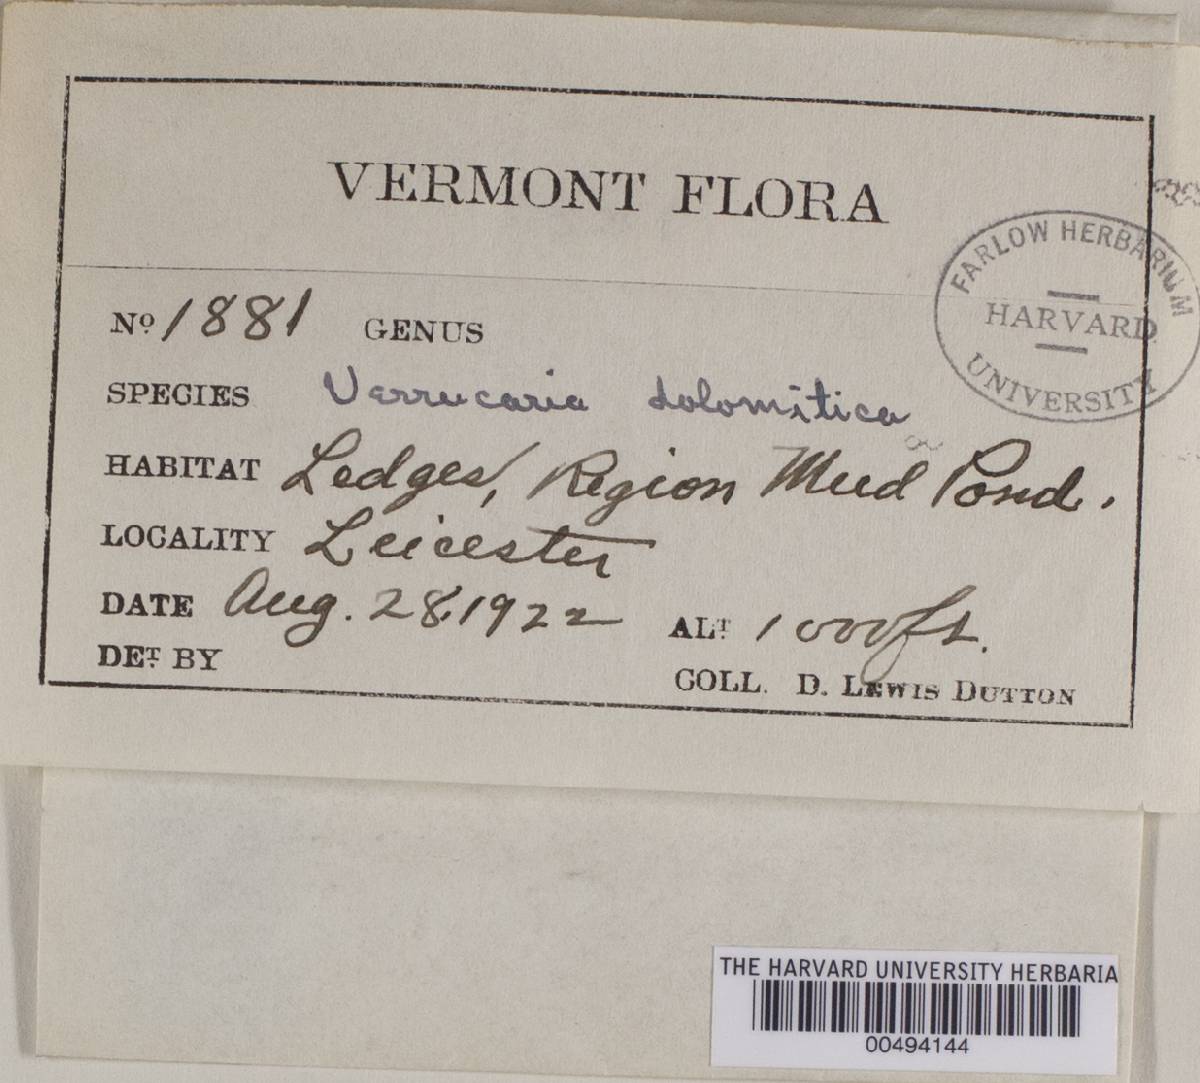 VERMONT FLORA
FARLOW HERBARIUM
HARVARD
UNIVERSITY
No 1881 GENUS
SPECIES Verrucaria dolomitica
HABITAT Ledges, Region Mud Pond.
LOCALITY Leicester
DATE Aug. 28, 1922 ALT 1000 ft.
DET BY
COLL. D. LEWIS DUTTON
THE HARVARD UNIVERSITY HERBARIA
00494144